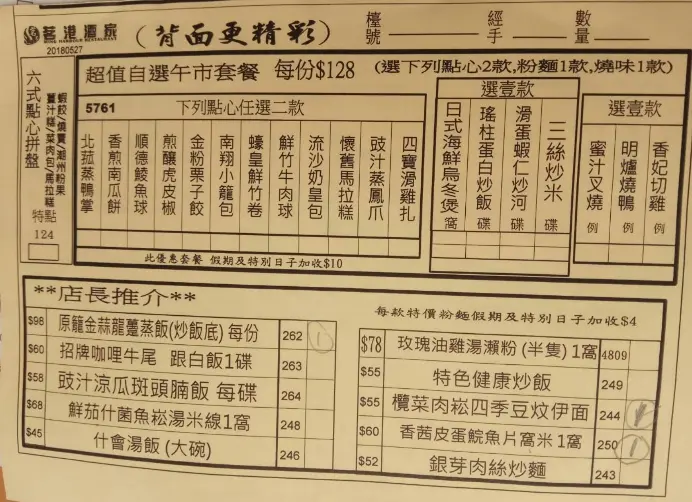 茗港酒家
20180527
(背面更精彩)
檯號
經手
數量
六式點心拼盤
蝦餃/燒賣/潮州粉果
薑汁糕/菜肉包/馬拉糕
特點
124
超值自選午市套餐 每份$128 (選下列點心2款,粉麵1款,燒味1款)
5761 下列點心任選二款
北菰蒸鴨掌
香煎南瓜餅
順德鯪魚球
煎釀虎皮椒
金粉栗子餃
南翔小籠包
蠔皇鮮竹卷
鮮竹牛肉球
流沙奶皇包
懷舊馬拉糕
豉汁蒸鳳爪
四寶滑雞扎
此優惠套餐 假期及特別日子加收$10
選壹款
日式海鮮烏冬煲 窩
瑤柱蛋白炒飯 碟
滑蛋蝦仁炒河 碟
三絲炒米 碟
選壹款
蜜汁叉燒 例
明爐燒鴨 例
香妃切雞 例
**店長推介**
$98 原籠金蒜龍躉蒸飯(炒飯底) 每份 262 1
$60 招牌咖哩牛尾 跟白飯1碟 263
$58 豉汁涼瓜斑頭腩飯 每碟 264
$68 鮮茄什菌魚崧湯米線1窩 248
$45 什會湯飯 (大碗) 246
每款特價粉麵假期及特別日子加收$4
$78 玫瑰油雞湯瀨粉 (半隻) 1窩 4809
$55 特色健康炒飯 249
$55 欖菜肉崧四季豆炆伊面 244
$60 香茜皮蛋鯇魚片窩米 1窩 250 1
$52 銀芽肉絲炒麵 243